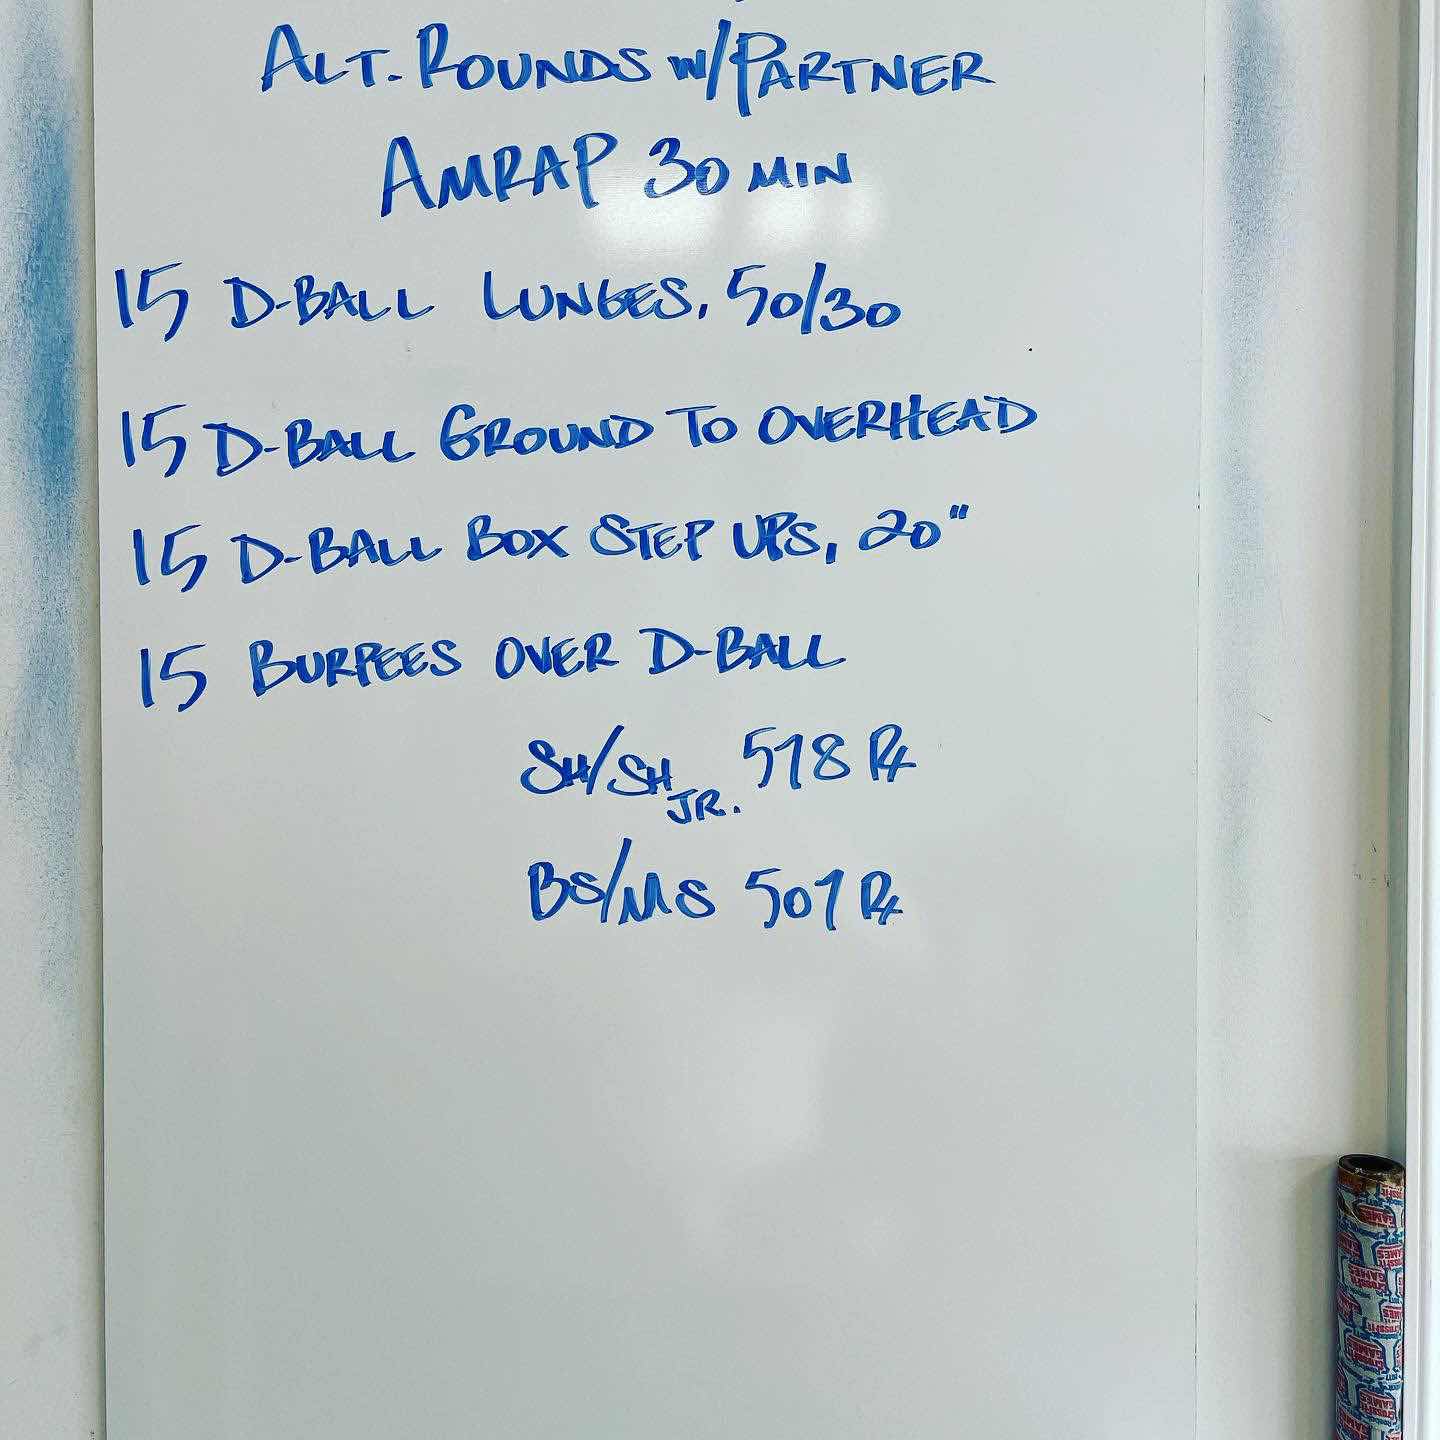 ALT. ROUNDS W/PARTNER
AMRAP 30 MIN
15 D-BALL LUNGES, 50/30
15 D-BALL GROUND TO OVERHEAD
15 D-BALL BOX STEP UPS, 20"
15 BURPEES OVER D-BALL
SH/SH JR. 578 Rx
BS/MS 507 Rx
CROSSFIT
GAMES